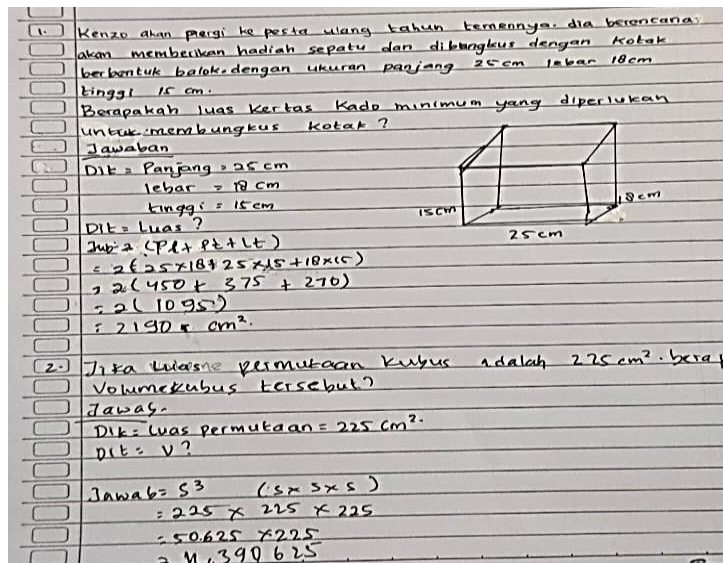 1. Kenzo akan pergi ke pesta ulang tahun temennya. dia berencana
akan memberikan hadiah sepatu dan dibungkus dengan kotak
berbentuk balok. dengan ukuran panjang 25 cm lebar 18 cm
tinggi 15 cm.
Berapakah luas kertas kado minimum yang diperlukan
untuk membungkus kotak ?
Jawaban
Dik = Panjang = 25 cm
lebar = 18 cm
tinggi = 15 cm
Dit = Luas ?
Jwb = 2 (Pl + Pt + Lt)
= 2 (25 x 18 + 25 x 15 + 18 x 15)
= 2 (450 + 375 + 270)
= 2 (1095)
= 2190 cm².
15 cm
18 cm
25 cm
2. Jika luasne permukaan kubus adalah 225 cm². bera
Volume kubus tersebut?
Jawab.
Dik = luas permukaan = 225 cm².
Dit = V ?
Jawab = S³ (s x s x s)
= 225 x 225 x 225
= 50.625 x 225
= 11.390 625